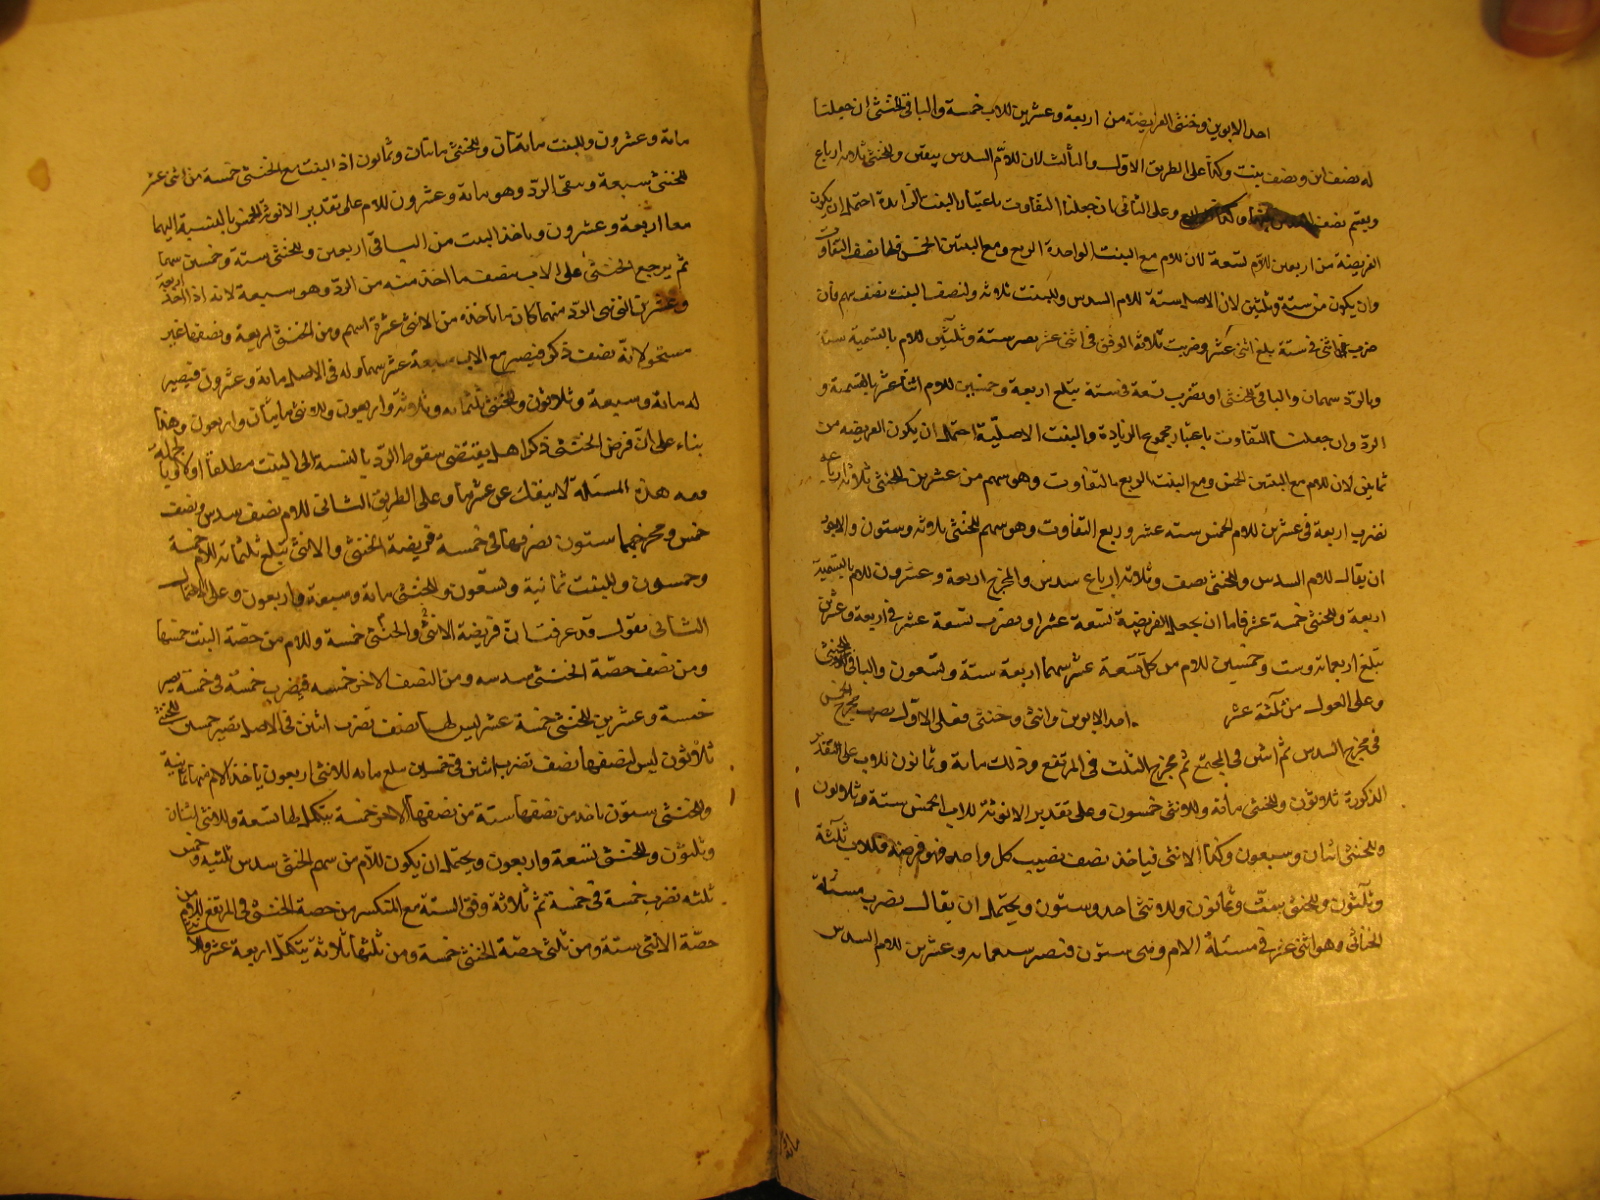 احد الابوين وخنثى الفريضة من اربعة وعشرين للاب خمسة والباقى للخنثى ان جعلنا
له نصف ابن ونصف بنت وكذا على الطريق الاول والثالث لان للام السدس بيقين وللخنثى ثلاثة ارباع
ويبقى نصف وعلى الثانى بان جعلنا التفاوت باعتبار البنت الزائدة احتمل ان يكون
الفريضة من اربعين للام تسعة لان للام مع البنت الواحدة الربع ومع البنتين الخمس فلها نصف التفاوت
وان يكون من ستة وثلثين لان الاصل ستة للام السدس وللبنت ثلاثة ولنصف البنت نصف سهم فان
ضرب اثنى فى ستة بلغ اثنى عشر وضربت ثلاثة الوفق فى اثنى عشر يصر ستة وثلثين للام بالتسمية ستة
وبالرد سهمان والباقى للخنثى او تضرب تسعة فى ستة يبلغ اربعة وخمسين للام اثنا عشر بالتسمية و
الرد وان جعلنا التفاوت باعتبار مجموع الزيادة والبنت الاصلية احتمل ان يكون الفريضه من
ثمانين لان للام مع البنتين الخمس ومع البنت الربع بالتفاوت وهو سهم من عشرين للخنثى ثلاثة ارباعه
نضرب اربعة فى عشرين للام الخمس سته عشر وربع التفاوت وهو سهم للخنثى ثلاثة وستون والاجود
ان يقال للام السدس وللخنثى نصف وثلاثة ارباع سدس والمخرج اربعة وعشرون للام بالتسمية
اربعة وللخنثى خمسة عشر فاما ان يجعل الفريضة تسعة عشر او يضرب تسعة عشر فى اربعة وعشرين
تبلغ اربعمائة وست وخمسين للام من كل تسعة عشر سهما اربعة ستة وتسعون والباقى للخنثى
وعلى العول من ثلثة عشر احد الابوين وانثى وخنثى فعلى الاول يضرب مخرج الخمس
فى مخرج السدس ثم اثنين فى المجتمع ثم مخرج الثلث فى المرتفع وذلك مائة وثمانون للاب على تقدير
الذكورة ثلاثون وللخنثى مائة وللانثى خمسون وعلى تقدير الانوثة للاب الخمس ستة وثلاثون
وللخنثى اثنان وسبعون وكذا الانثى فياخذ نصف نصيب كل واحد فى فرضه فللاب ثلثة
وثلثون وللخنثى ست وثمانون وللانثى احد وستون ويحتمل ان يقال يضرب مسئلة
الخناثى وهو اثنى عشر فى مسئلة الام وهى ستون فتصير سبعمائة وعشرين للام السدس
مائة وعشرون وللبنت مائتان وللخنثى مائتان وثمانون اذ البنت مع الخنثى خمسة من اثنى عشر
للخنثى سبعة ويبقى الرد وهو مائة وعشرون للام على تقدير الانوثة الخمس بالنسبة اليهما
معا اربعة وعشرون وياخذ البنت من الباقى اربعين وللخنثى ستة وخمسين سهما
ثم يرجع الخنثى على الاب بنصف ما اخذ منه من الرد وهو سبعة لانه اذا اخذ اربعة
وعشرين التى هى الرد منهما كان ما ياخذه من الانثى عشرة اسهم ومن الخنثى اربعة ونصفها غير
مستحق لانه نصف ذكر فيصير مع الاب سبعة عشر سهما وله فى الاصل مائة وعشرون فيصير
له مائة وسبعة وثلاثون وللخنثى ثلثمائه وثلاثة واربعون وللانثى مائتان واربعون وهذا
بناء على ان فرض الخنثى ذكرا هل يقتضى سقوط الرد بالنسبة الى البنت مطلقا او لا وبالجملة
معه هذه المسئلة لا ينفك عن عشر ما وعلى الطريق الثانى للام نصف سدس ونصف
خمس ومخرجهما ستون نضربها فى خمسة فريضة الخنثى والانثى تبلغ ثلثمائة للام خمسة
وخمسون وللبنت ثمانية وتسعون وللخنثى مائة وسبعة واربعون وعلى الاحتمال
الثانى نقول قد عرفت ان فريضة الانثى والخنثى خمسة وللام من حصة البنت خمسها
ومن نصف حصة الخنثى سدسه ومن النصف الاخر خمسه فيضرب خمسة فى خمسة يصير
خمسة وعشرين للخنثى خمسة عشر ليس لها نصف تضرب اثنين فى الاصل يصير خمسين للخنثى
ثلاثون ليس لنصفها نصف تضرب اثنين فى خمسين تبلغ مائه للانثى اربعون ياخذ الام منها ثمانية
وللخنثى ستون ياخذ من نصفها ستة من نصفها الاخر خمسة يتكمل لها تسعة وللانثى اثنان
وثلثون وللخنثى تسعة واربعون ويحتمل ان يكون للام من سهم الخنثى سدس ثلثيه وخمس
ثلثه نضرب خمسة فى خمسة ثم ثلاثة وفق الستة مع المنكسر من حصة الخنثى فى المرتفع للام من
حصة الانثى ستة ومن ثلثى حصة الخنثى خمسة ومن ثلثها ثلاثة يتكمل اربعة عشر